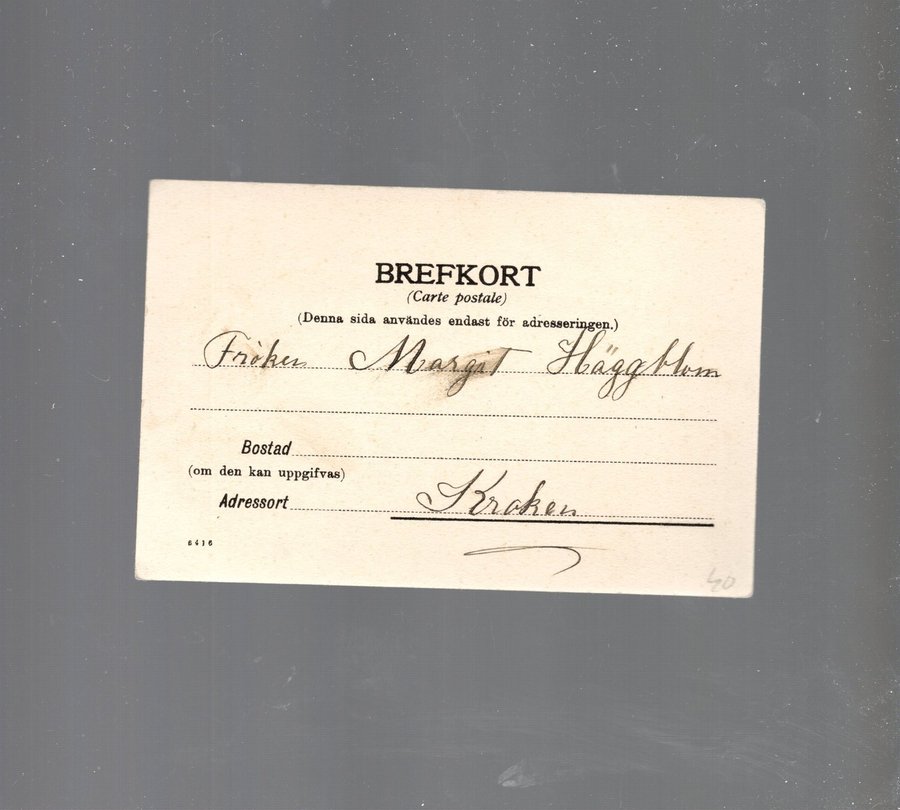 BREFKORT
(Carte postale)
(Denna sida användes endast för adresseringen.)
Fröken Margit Häggblom
Bostad
(om den kan uppgifvas)
Adressort Kroken
6416
40